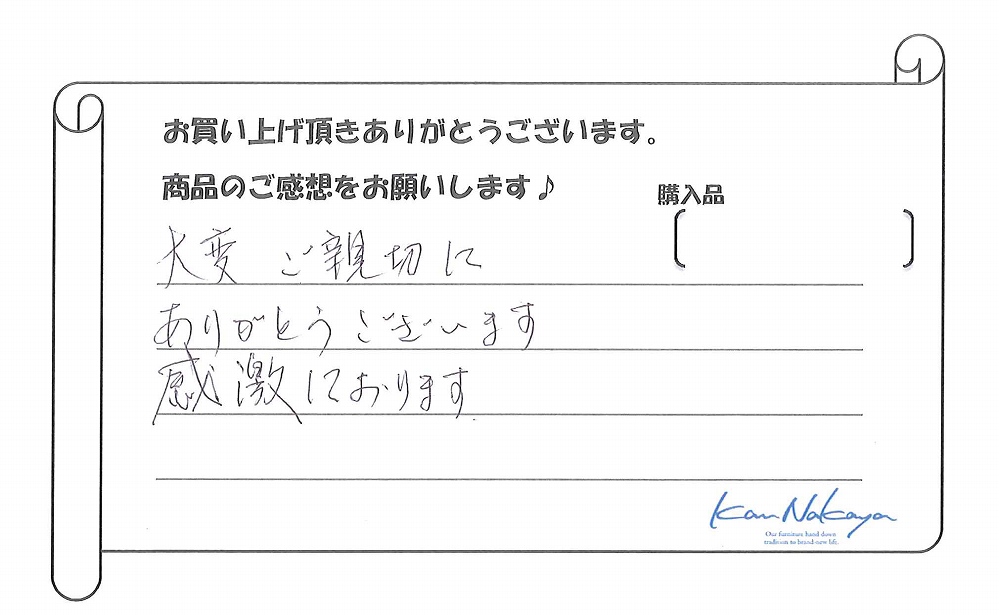 お買い上げ頂きありがとうございます。
商品のご感想をお願いします♪
購入品
大変 ご親切に
ありがとうございます
感激しております
Kan Nakaya
Our furniture hand down
tradition to brand-new life.